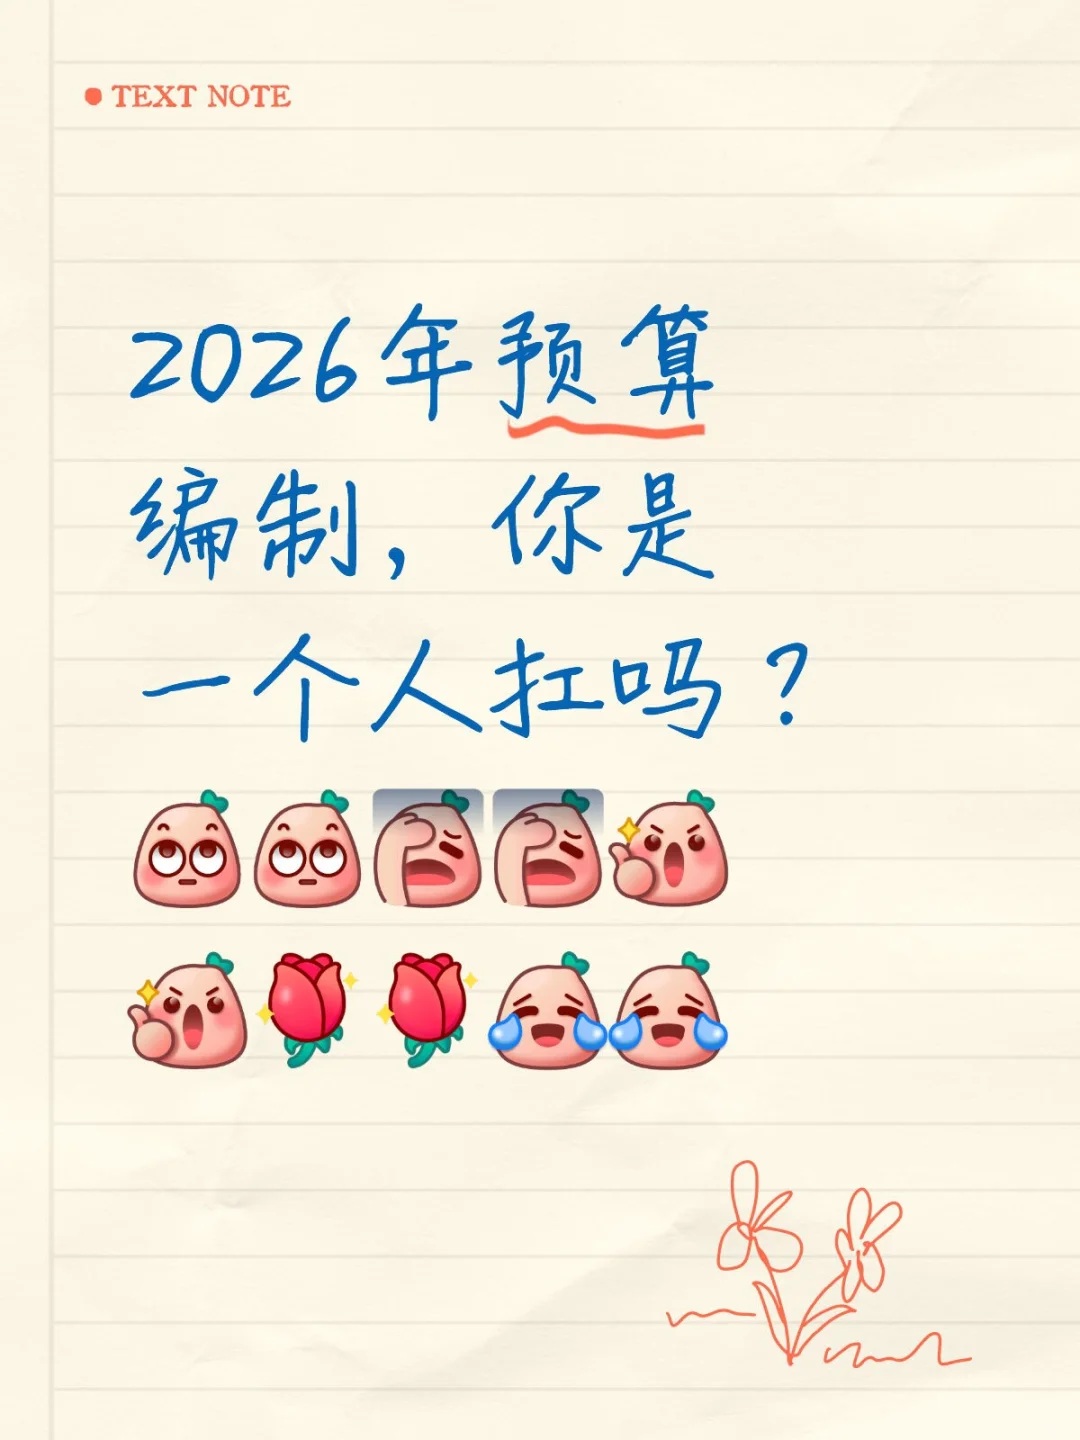 TEXT NOTE
2026年预算
编制，你是
一个人扛吗？